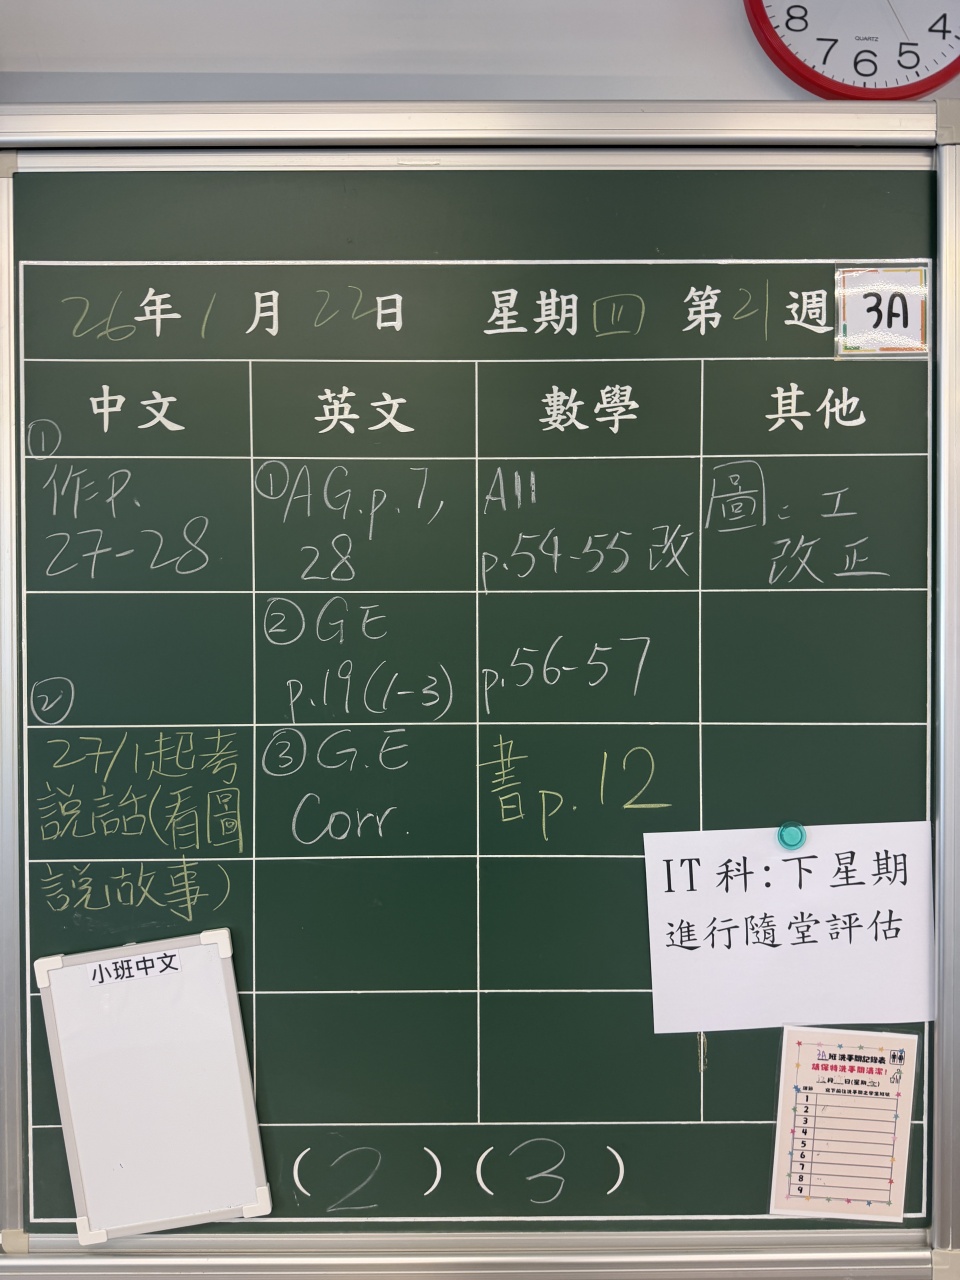 8 7 6 5 4
QUARTZ
26年1月22日 星期四 第21週 3A
中文 英文 數學 其他
①
作:P.
27-28
①AG.p.7,
28
All
p.54-55 改
圖:工
改正
②
②GE
p.19(1-3)
p.56-57
27/1起考
說話(看圖
說故事)
③G.E
Corr.
書p.12
IT科:下星期
進行隨堂評估
小班中文
3A班洗手間記錄表
請保持洗手間清潔!
1
2
3
4
5
6
7
8
9
(2)(3)